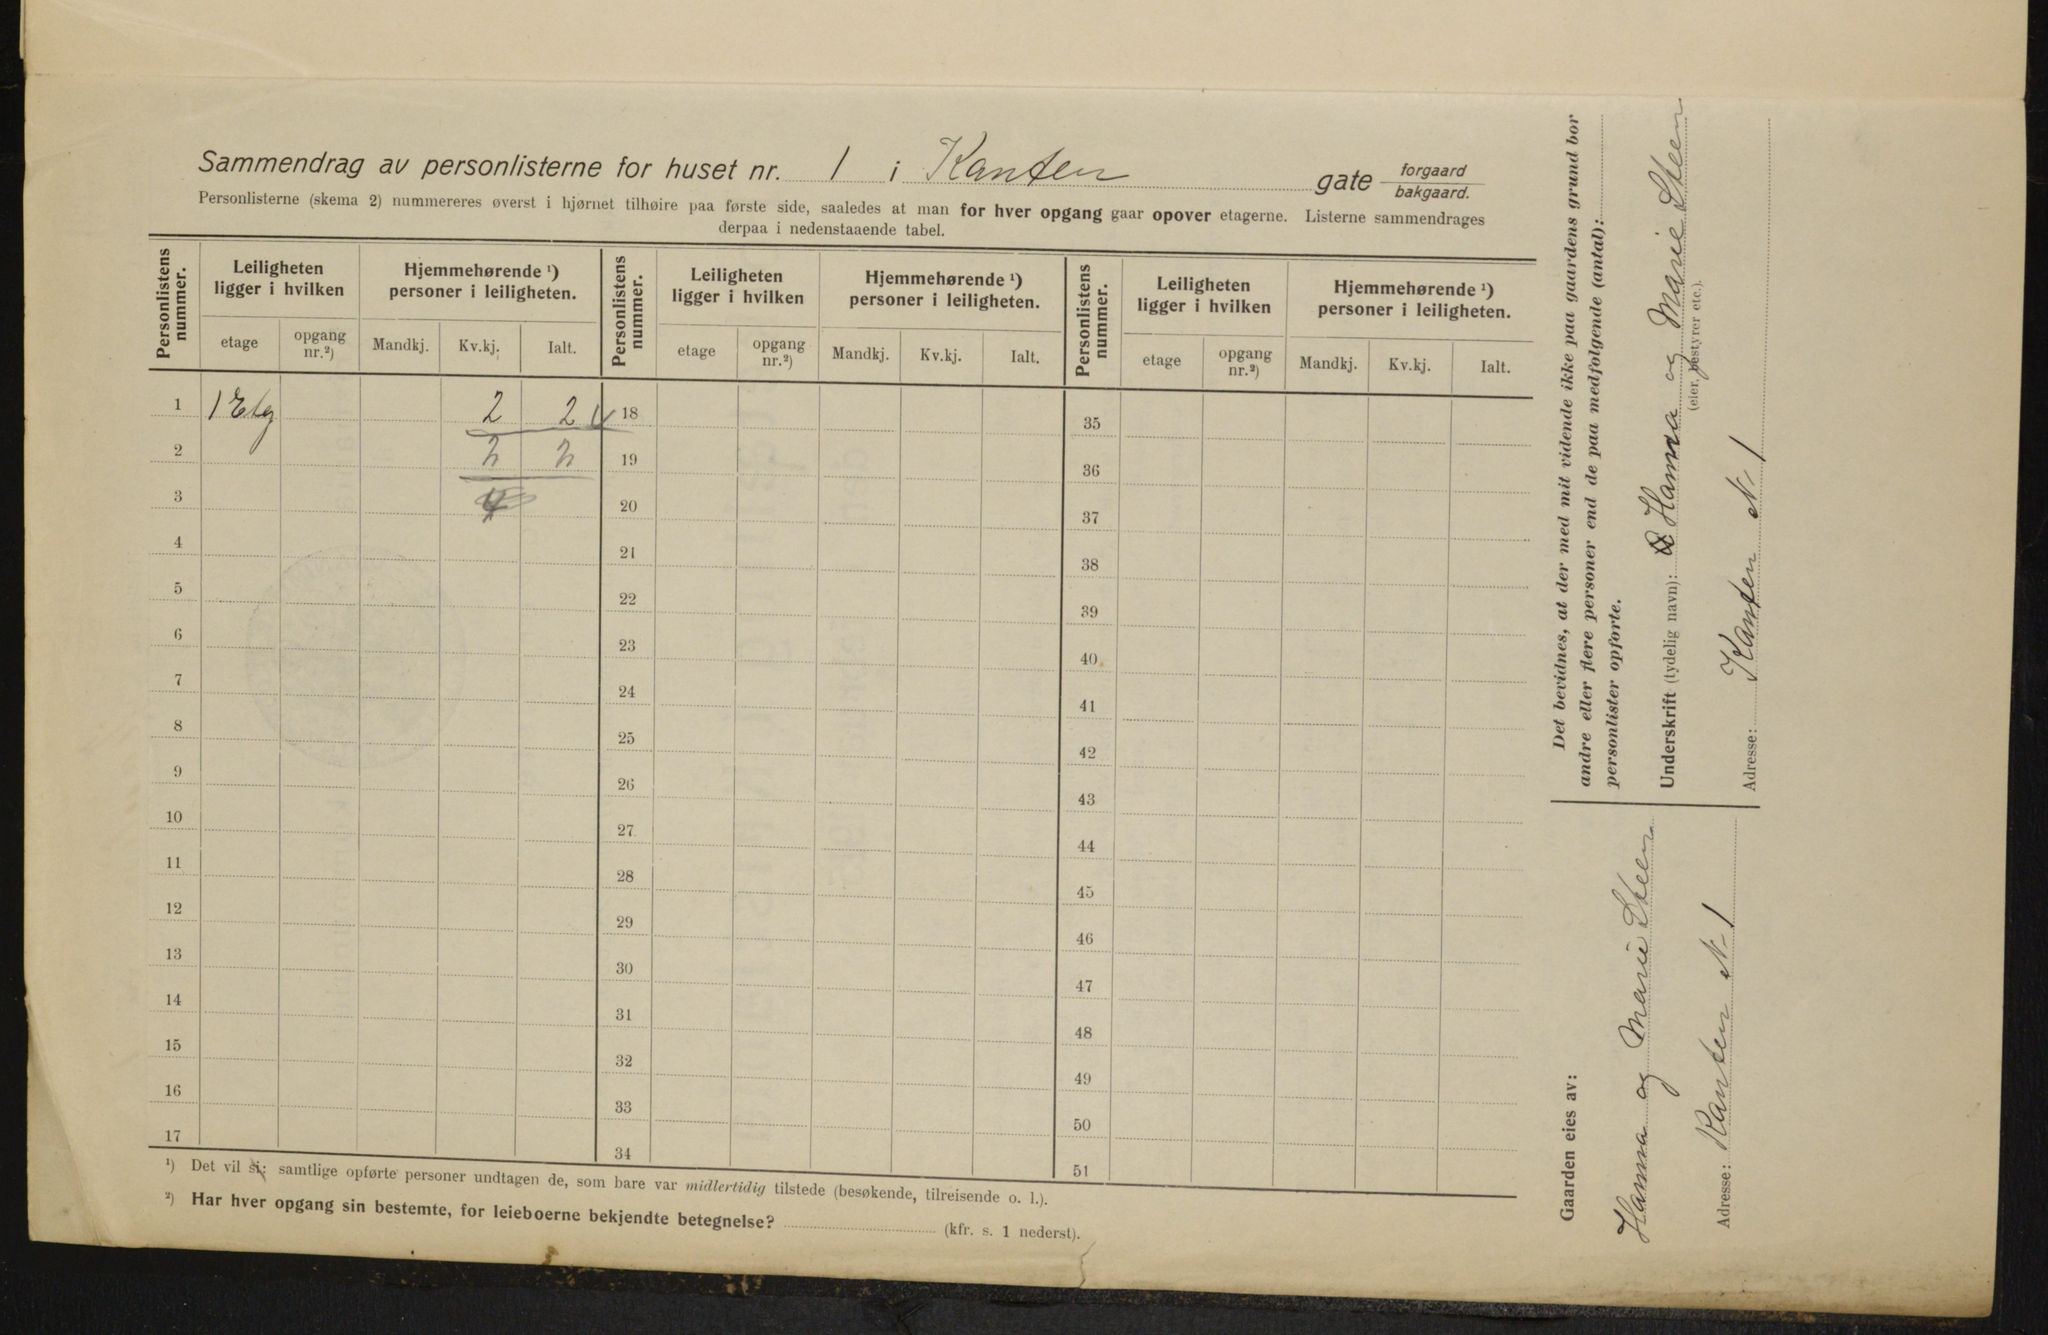 Sammendrag av personlisterne for huset nr. 1 i Kanten gate forgaard
bakgaard.
Personlisterne (skema 2) nummereres øverst i hjørnet tilhøire paa første side, saaledes at man for hver opgang gaar opover etagerne. Listerne sammendrages
derpaa i nedenstaaende tabel.
Personlistens nummer. Leiligheten ligger i hvilken Hjemmehørende ¹) personer i leiligheten. Personlistens nummer. Leiligheten ligger i hvilken Hjemmehørende ¹) personer i leiligheten. Personlistens nummer. Leiligheten ligger i hvilken Hjemmehørende ¹) personer i leiligheten.
etage opgang nr.²) Mandkj. Kv.kj. Ialt. etage opgang nr.²) Mandkj. Kv.kj. Ialt. etage opgang nr.²) Mandkj. Kv.kj. Ialt.
1 1 Etg 2 2 18 35
2 2 2 19 36
3 4 20 37
4 21 38
5 22 39
6 23 40
7 24 41
8 25 42
9 26 43
10 27 44
11 28 45
12 29 46
13 30 47
14 31 48
15 32 49
16 33 50
17 34 51
¹) Det vil si: samtlige opførte personer undtagen de, som bare var midlertidig tilstede (besøkende, tilreisende o. l.).
²) Har hver opgang sin bestemte, for leieboerne bekjendte betegnelse? (kfr. s. 1 nederst).
Det bevidnes, at der med mit vidende ikke paa gaardens grund bor
andre eller flere personer end de paa medfølgende (antal):
personlister opførte.
Underskrift (tydelig navn): Hanna og Marie Steen
(eier, bestyrer etc.).
Adresse: Kanten N 1
Gaarden eies av:
Hanna og Marie Steen
Adresse: Kanten N 1